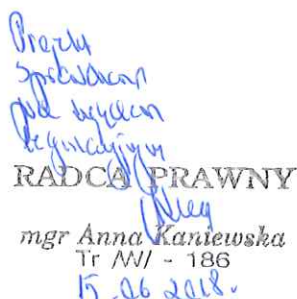 Projekt
sprawdzono
pod względem
legislacyjnym
RADCA PRAWNY
mgr Anna Kaniewska
Tr /W/ - 186
15.06 2018.